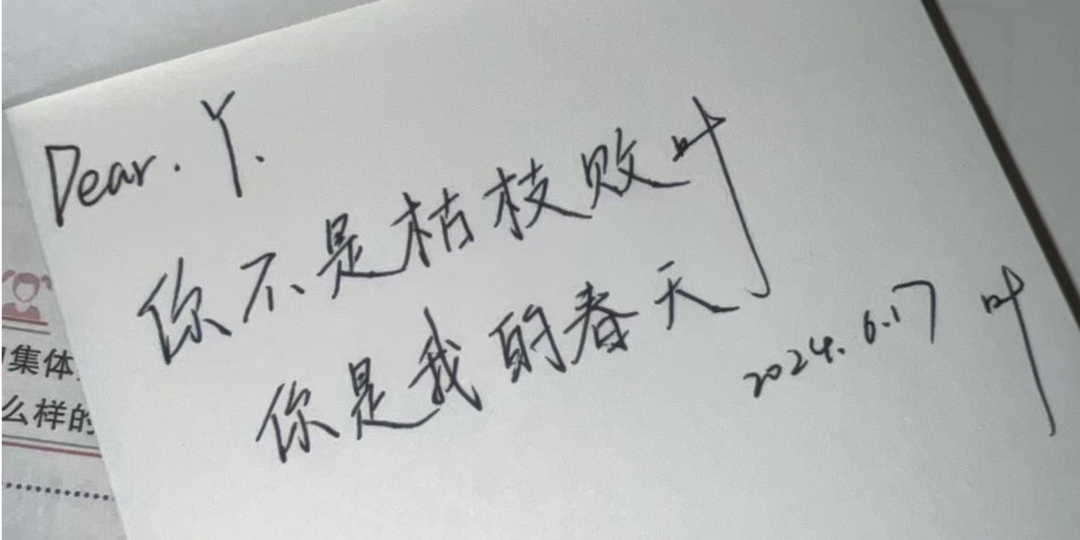 Dear. Y.
你不是枯枝败叶
你是我的春天
2024.6.17 叶
集体
么样的